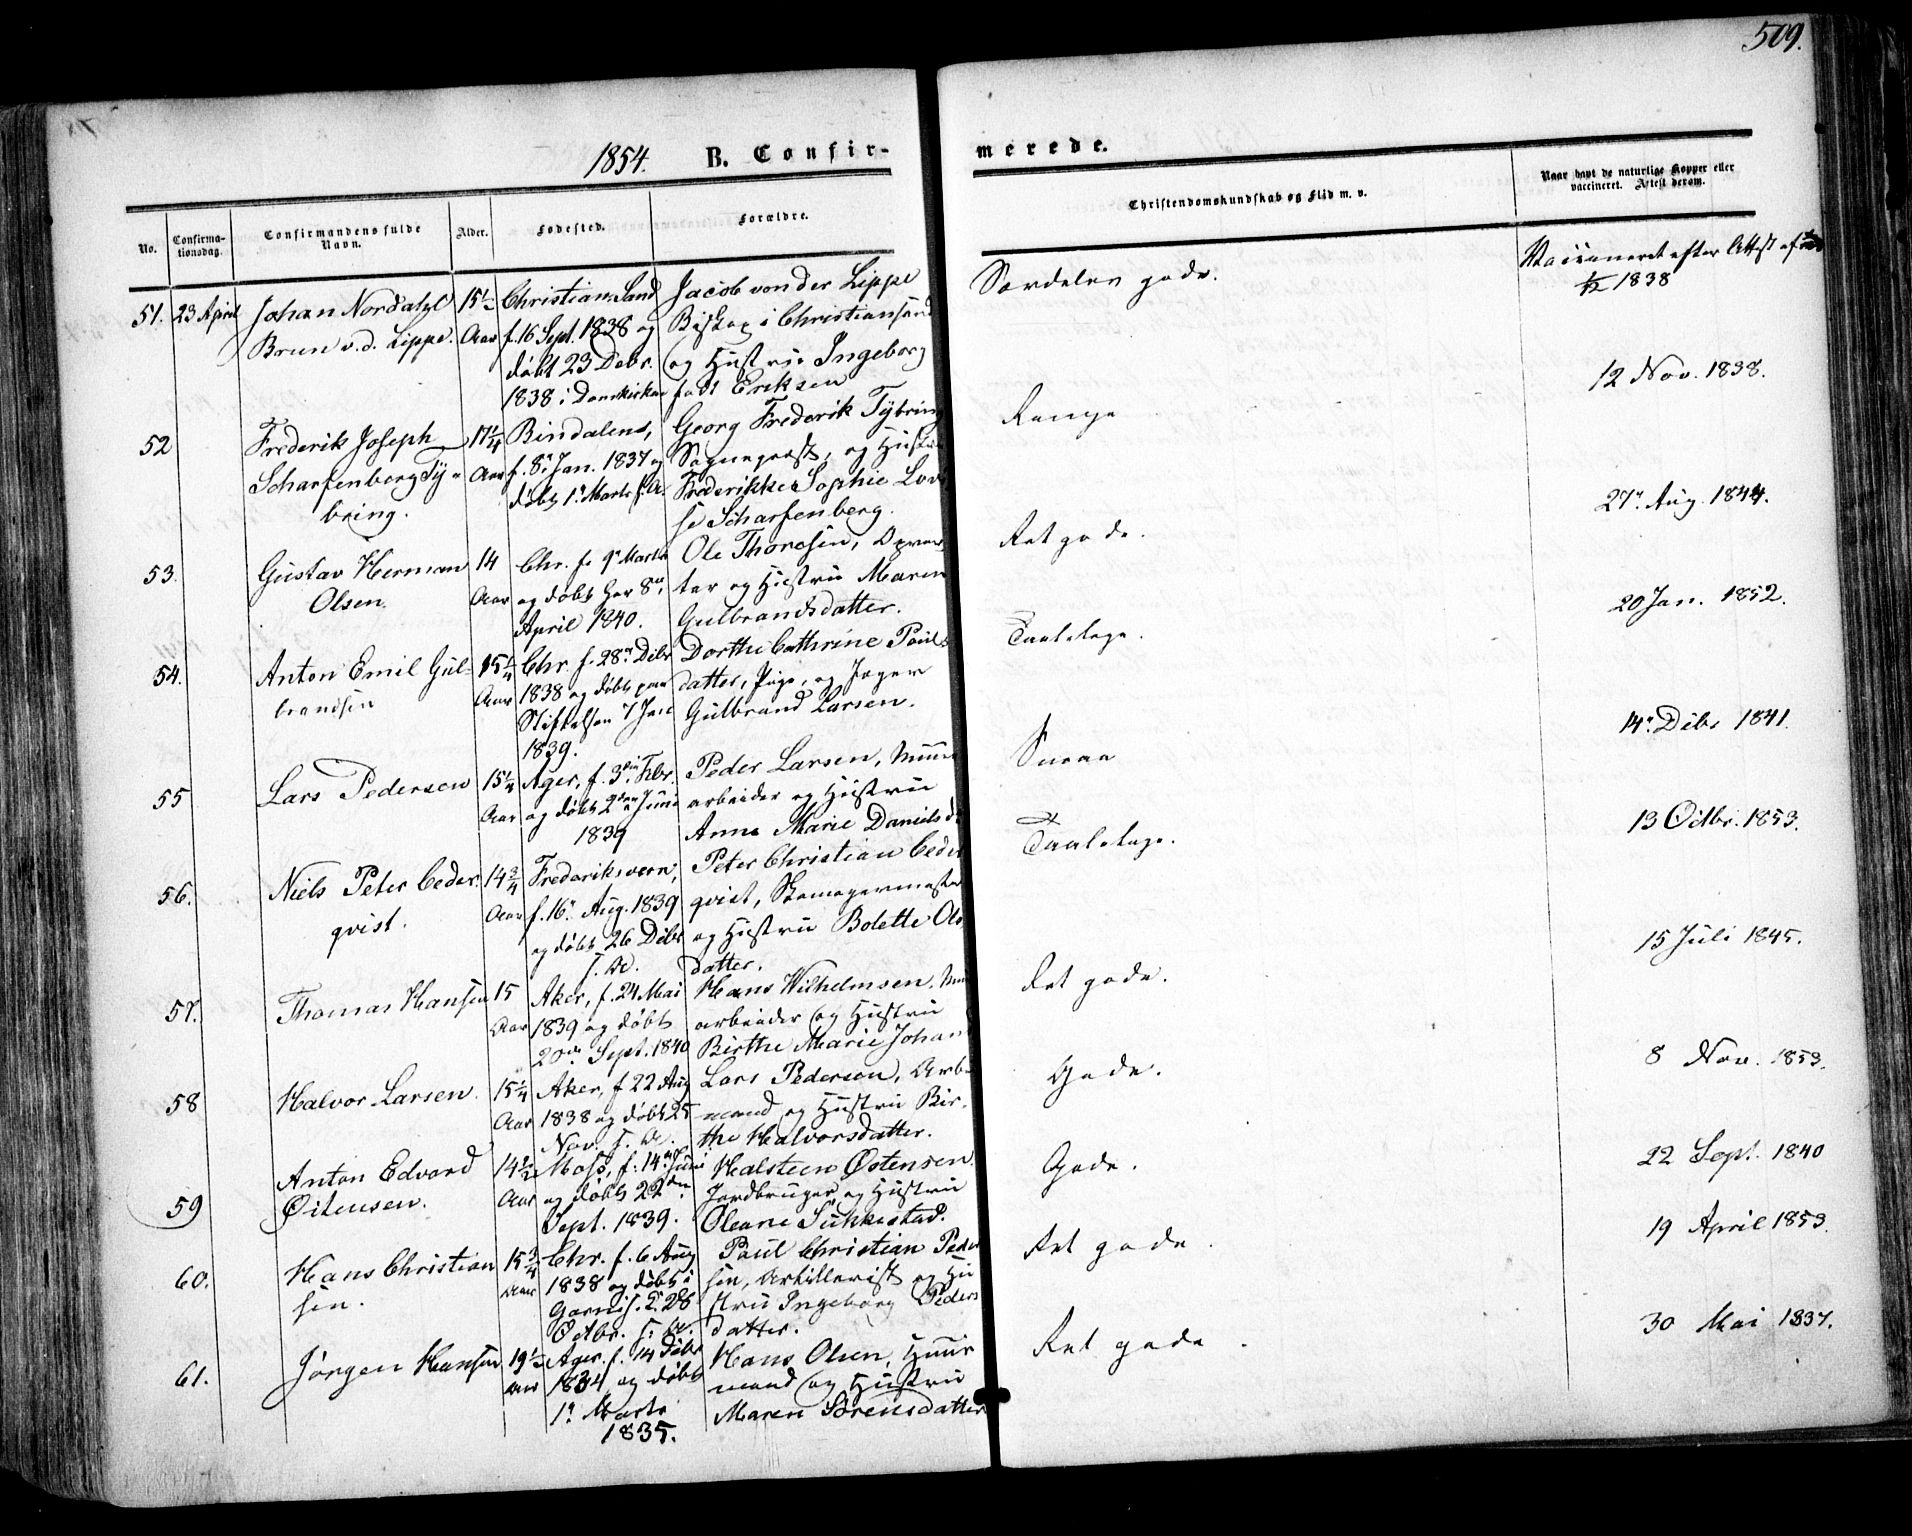 509.
1854. B. Confir-
merede.
No.
Confirma-
tionsdag.
Confirmandens fulde
Navn.
Alder.
Fødested.
Forældre.
Christendomskundskab og Flid m. v.
Naar havt de naturlige Kopper eller
vaccineret. Attest derom.
51. 23 April Johan Nordahl
Brun v. d. Lippe.
15½
Aar
Christiansand
f. 16 Sept. 1838 og
døbt 23 Debr.
1838 i Domkirken
Jacob von der Lippe
Biskop i Christiansand
og Hustru Ingeborg
født Eriksen
Særdeles gode.
Vaccineret efter Attest af
1838
52 Frederik Joseph
Scharfenberg Ty-
bring.
17¼
Aar
Bindalens,
f. 8 Jan. 1837 og
døbt 1. Marts s. A.
Georg Frederik Tybring
Sognepræst, og Hustru
Frederikke Sophie Lovi
se Scharfenberg.
12 Nov. 1838.
53. Gustav Herman
Olsen.
14
Aar
Chr. f. 9 Marts
og døbt her 8de
April 1840.
Ole Thoresen, Opvar
ter og Hustru Maren
Gulbrandsdatter.
Ret gode.
27 Aug. 1844.
54. Anton Emil Gul-
brandsen
15¼
Aar
Chr. f. 28 Debr
1838 og døbt paa
Stiftelsen 7 Jan
1839.
Dorthe Cathrine Pouls
datter, Pige, og Jæger
Gulbrand Larsen.
Taalelige.
20 Jan. 1852.
55 Lars Pedersen
15¼
Aar
Ager, f. 3 Febr.
og døbt 2den Juni
1839
Peder Larsen, Muur
arbeider og Hustru
Anne Marie Daniels d
Smaa
14 Debr 1841.
56. Niels Peter Ceder-
qvist.
14¾
Aar
Frederiksvern,
f. 16 Aug. 1839
og døbt 26 Debr
s. A.
Peter Christian Ceder
qvist, Skomagermester
og Hustru Bolette Ols
datter.
Taalelige.
13 Octbr. 1853.
57. Thomas Hansen
15
Aar
Aker, f. 24 Mai
1839 og døbt
20de Sept. 1840
Hans Wilhelmsen, Muur
arbeider og Hustru
Birthe Marie Johan
Ret gode.
15 Juli 1845.
58 Halvor Larsen.
15¼
Aar
Aker, f 22 Aug
1838 og døbt 25
Nov. s. A.
Lars Pedersen, Arb-
mand og Hustru Bir-
the Halvorsdatter.
Gode.
8 Nov. 1853.
59 Anton Edvard
Østensen.
14½
Aar
Moss, f. 14 Juni
og døbt 22den
Sept. 1839.
Halsteen Østensen.
Jordbruger og Hustru
Oleane Sukkestad.
Gode.
22 Sept. 1840
60. Hans Christian
sen.
15¾
Aar
Chr. f. 6 Aug
1838 og døbt i
Garnis. K. 28
Octbr. s. A.
Poul Christian Peder
sen, Artillerist og Hu
stru Ingeborg Peders
datter.
Ret gode.
19 April 1853.
61. Jørgen Hansen
19½
Aar
Ager. f. 14 Debr
1834 og døbt
1 Marts
1835.
Hans Olsen, Huus
mand og Hustru
Maren Sørensdatter
Ret gode.
30 Mai 1837.